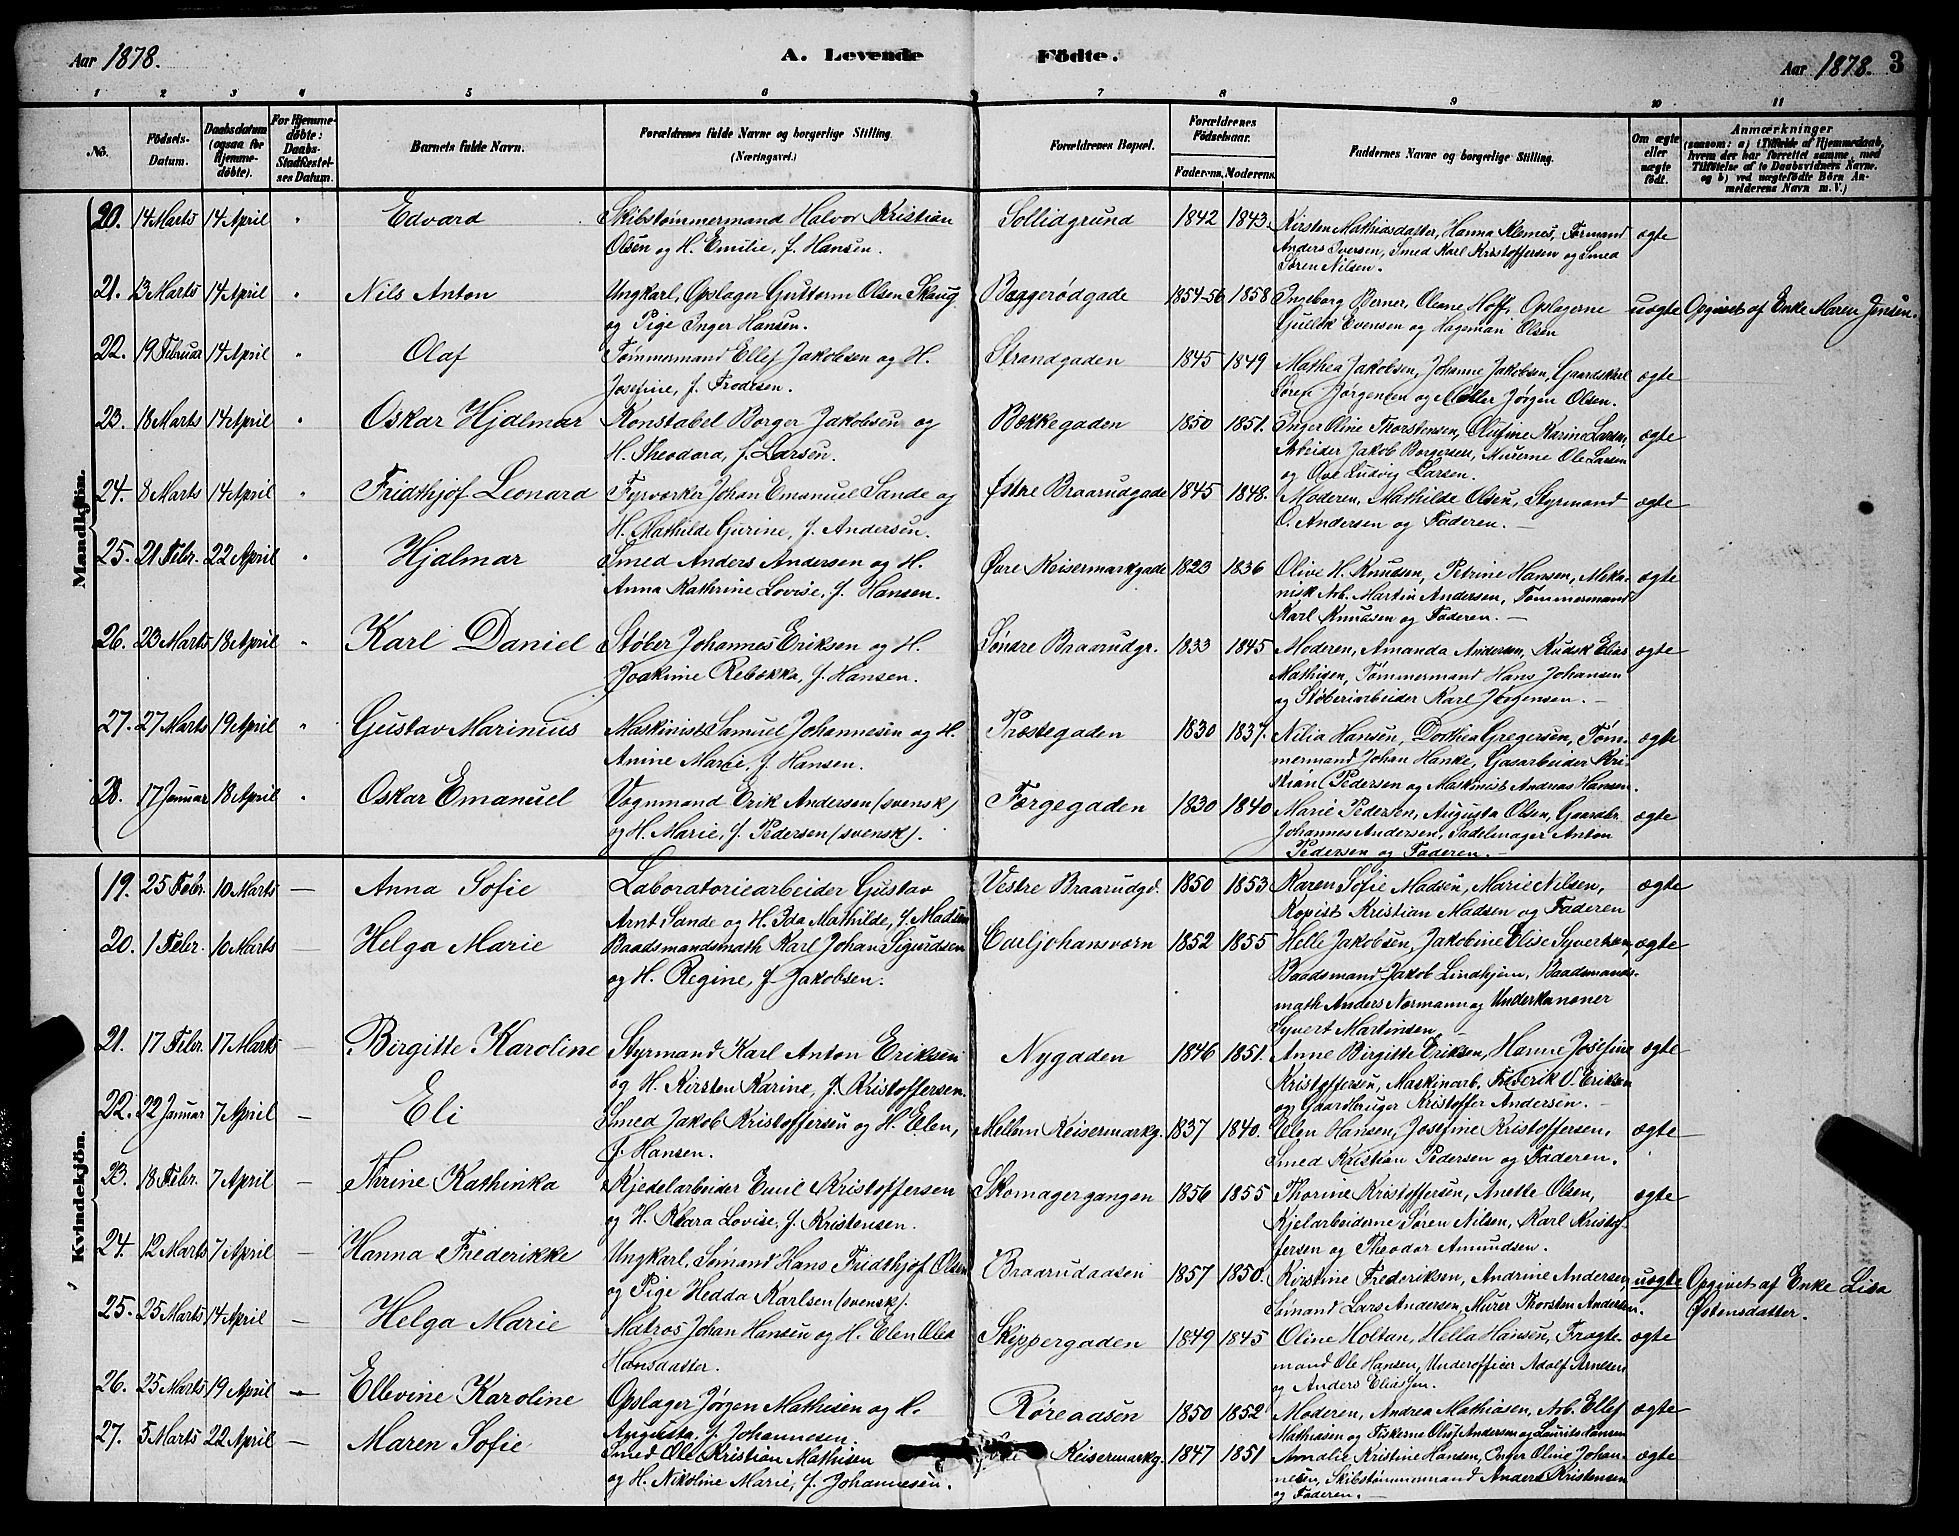 Aar 1878.
A. Levende Födte.
Aar 1878. 3
1 2 3 4 5 6 7 8 9 10 11
No.
Födsels-Datum.
Daabsdatum (ogsaa for Hjemme-døbte).
For Hjemme-døbte: Daabs-Stadfæstel-ses Datum.
Barnets fulde Navn.
Forældrenes fulde Navne og borgerlige Stilling. (Næringsvei.)
Forældrenes Bopæl.
Forældrenes Födselsaar.
Faderens. Moderens.
Faddernes Navne og borgerlige Stilling.
Om ægte eller uægte født.
Anmærkninger
(saasom: a) i Tilfælde af Hjemmedaab, hvem der har forrettet samme, med Tilföielse af to Daabsvidners Navne. og b) ved uægtefödte Börn An-melderens Navn m. V.)
Mandkjön.
20. 14 Marts 14 April " Edvard Skibstømmermand Halvor Kristian Sollidgrund 1842 1843. Kirsten Mathiasdatter, Hanna Klemes, Formand ægte
Olsen og H. Emilie, f. Hansen. Anders Iversen, Smed Karl Kristoffersen og Smed
Søren Nilsen.
21. 13 Marts 14 April " Nils Anton Ungkarl, Opslager Guttorm Olsen Skaug Baggerødgade 1854-56 1858 Ingeborg Berner, Oleane Hoff, Opslagerne uægte Opgivet af Enke Maren Jensen.
og Pige Inger Hansen. Gullik Evensen og Hageman Olsen
22. 19 Februar 14 April " Olaf Tømmermand Ellef Jakobsen og H. Strandgaden 1845 1849 Mathea Jakobsen, Johanne Jakobsen, Gaardskarl ægte
Josefine, f. Frodesen. Søren Jørgensen og Møller Jørgen Olsen.
23. 18 Marts 14 April " Oskar Hjalmar Konstabel Borger Jakobsen og Bækkegaden 1850 1851. Inger Oline Thorstensen, Olufine Karine Larsen, ægte
H. Theodora, f. Larsen. Arbeider Jakob Borgersen, Murerne Ole Larsen
og Ove Ludvig Larsen.
24. 8 Marts 14 April " Fridthjof Leonard Fyrværker Johan Emanuel Sande og Østre Braarudgade 1845 1848. Moderen, Mathilde Olsen, Styrmand ægte
H. Mathilde Gurine, f. Andersen. O. Andersen og Faderen. —
25. 21 Febr. 22 April " Hjalmar Smed Anders Andersen og H. Øvre Keisermarkgade 1823 1836 Olive H. Knudsen, Petrine Hansen, Meka- ægte
Anna Kathrine Lovise, f. Hansen. nisk Arb. Martin Andersen, Tømmermand
Karl Knudsen og Faderen. —
26. 23 Marts 18 April " Karl Daniel Støber Johannes Eriksen og H. Søndre Braarudgr. 1833 1845 Moderen, Amanda Andersen, Kudsk Elias ægte
Joakime Rebekka, f. Hansen. Mathisen, Tømmermand Hans Johansen
og Støberiarbeider Karl Jørgensen. —
27. 27 Marts 19 April " Gustav Marinius Maskinist Samuel Johannesen og H. Præstegaden 1830 1837. Nilia Hansen, Dorthea Gregersen, Tøm- ægte
Anine Marie, f. Hansen. mermand Johan Hanke, Gasarbeider Kri-
stian Pedersen og Maskinist Andreas Hansen.
28. 17 Januar 18 April " Oskar Emanuel Vognmand Erik Andersen (svensk) Færgegaden 1830 1840 Marie Pedersen, Augusta Olsen, Gaardbr. ægte
og H. Marie, f. Pedersen (svensk). Johannes Andersen, Sadelmager Anton
Pedersen og Faderen. —
Kvindekjön.
19. 25 Febr. 10 Marts — Anna Sofie Laboratoriearbeider Gustav Vestre Braarudgd. 1850 1853 Karen Sofie Madsen, Marie Nilsen, ægte
Arnt Sande og H. Ida Mathilde, f. Madsen Kopist Kristian Madsen og Faderen
20. 1 Febr. 10 Marts — Helga Marie Baadsmandsmath Karl Johan Sigurdsen Carljohansværn 1852 1855 Helle Jakobsen, Jakobine Elise Syvertsen, ægte
og H. Regine, f. Jakobsen. Baadsmand Jakob Lindhjem, Baadsmands-
math Anders Normann og Underkanoner
Syvert Martinsen —
21. 17 Febr. 17 Marts — Birgitte Karoline Styrmand Karl Anton Eriksen Nygaden 1846 1851. Anne Birgitte Eriksen, Hanne Josefine ægte
og H. Kirsten Karine, f. Kristoffersen. Kristoffersen, Maskinarb. Frederik O. Eriksen
og Gaardbruger Kristoffer Andersen. —
22. 22 Januar 7 April — Eli Smed Jakob Kristoffersen og H. Elen, Mellem Keisermarkg. 1837 1840. Elen Hansen, Josefine Kristoffersen, ægte
f. Hansen. Smed Kristian Pedersen og Faderen.
23. 18 Febr. 7 April — Thrine Kathinka Kjedelarbeider Emil Kristoffersen Skomagergangen 1856 1855 Thorine Kristoffersen, Anette Olsen, ægte
og H. Klara Lovise, f. Kristensen. Kjelarbeiderne Søren Nilsen, Karl Kristof-
fersen og Theodor Amundsen.
24. 12 Marts 7 April — Hanna Frederikke Ungkarl, Sømand Hans Fridthjof Olsen Braarudaasen 1857 1850. Kirstine Frederiksen, Andrine Andersen, uægte Opgivet af Enke Lisa
og Pige Hedda Karlsen (svensk). Sømand Lars Andersen, Murer Thorsten Andersen. Østensdatter.
25. 25 Marts 14 April — Helga Marie Matros Johan Hansen og H. Elen Olea Skippergaden 1849 1845 Oline Holtan, Hella Hansen, Fragte- ægte
Hansdatter. mand Ole Hansen, Underofficer Adolf Arnesen
og Anders Eliassen.
26. 25 Marts 19 April — Ellevine Karoline Opslager Jørgen Mathisen og H. Røreaasen 1850 1852 Moderen, Andrea Mathiasen, Arb. Ellef ægte
Augusta, f. Johannesen. Mathiasen og Fiskerne Oluf Andersen og Laurits Hansen
27. 5 Marts 22 April — Maren Sofie Smed Ole Kristian Mathisen Keisermarkg. 1847 1851 Amalie Kristine Hansen, Inger Oline Johan- ægte
og H. Nikoline Marie, f. Johannesen. nesen, Skibstømmermand Anders Kristensen
og Faderen. —